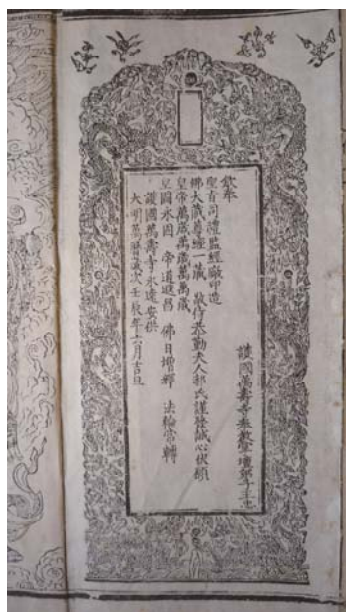 護國萬壽寺
欽奉
聖旨司禮監經廠印造
佛大藏尊經一藏 欽侍恭勤夫人邢氏謹發誠心祝願
皇帝萬歲萬歲萬萬歲
皇圖永固 帝道遐昌 佛日增輝 法輪常轉
護國萬壽寺永遠安供
大明萬曆歲次壬辰年六月吉旦